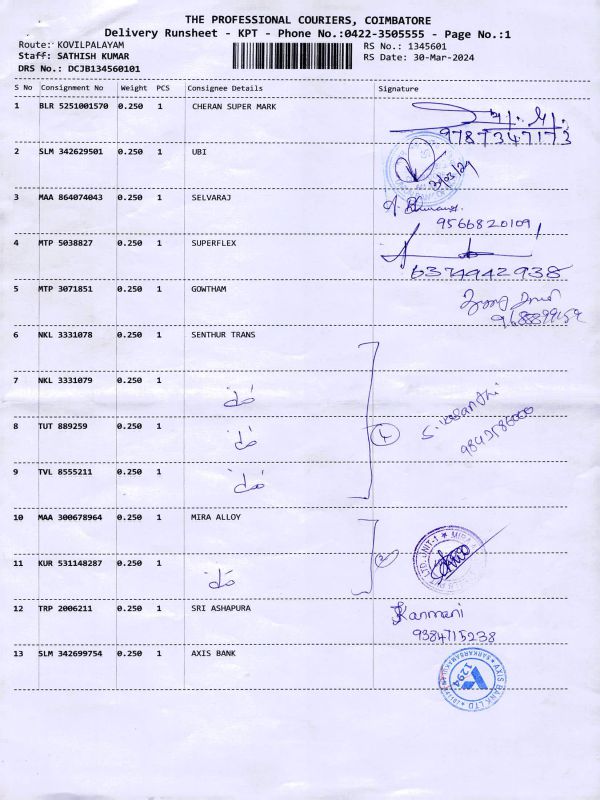 THE PROFESSIONAL COURIERS, COIMBATORE
Delivery Runsheet - KPT - Phone No.:0422-3505555 - Page No.:1
Route: KOVILPALAYAM RS No.: 1345601
Staff: SATHISH KUMAR RS Date: 30-Mar-2024
DRS No.: DCJB134560101
S No Consignment No Weight PCS Consignee Details Signature
1 BLR 5251001570 0.250 1 CHERAN SUPER MARK
9787347173
2 SLM 342629501 0.250 1 UBI
3 MAA 864074043 0.250 1 SELVARAJ
9566820109
4 MTP 5038827 0.250 1 SUPERFLEX
6374942938
5 MTP 3071851 0.250 1 GOWTHAM
6 NKL 3331078 0.250 1 SENTHUR TRANS
7 NKL 3331079 0.250 1 do
8 TUT 889259 0.250 1 do 4 S. Vasanthi
9 TVL 8555211 0.250 1 do
10 MAA 300678964 0.250 1 MIRA ALLOY
11 KUR 531148287 0.250 1 do 2
12 TRP 2006211 0.250 1 SRI ASHAPURA Kanmani
9384715238
13 SLM 342699754 0.250 1 AXIS BANK
AXIS BANK LTD
1294